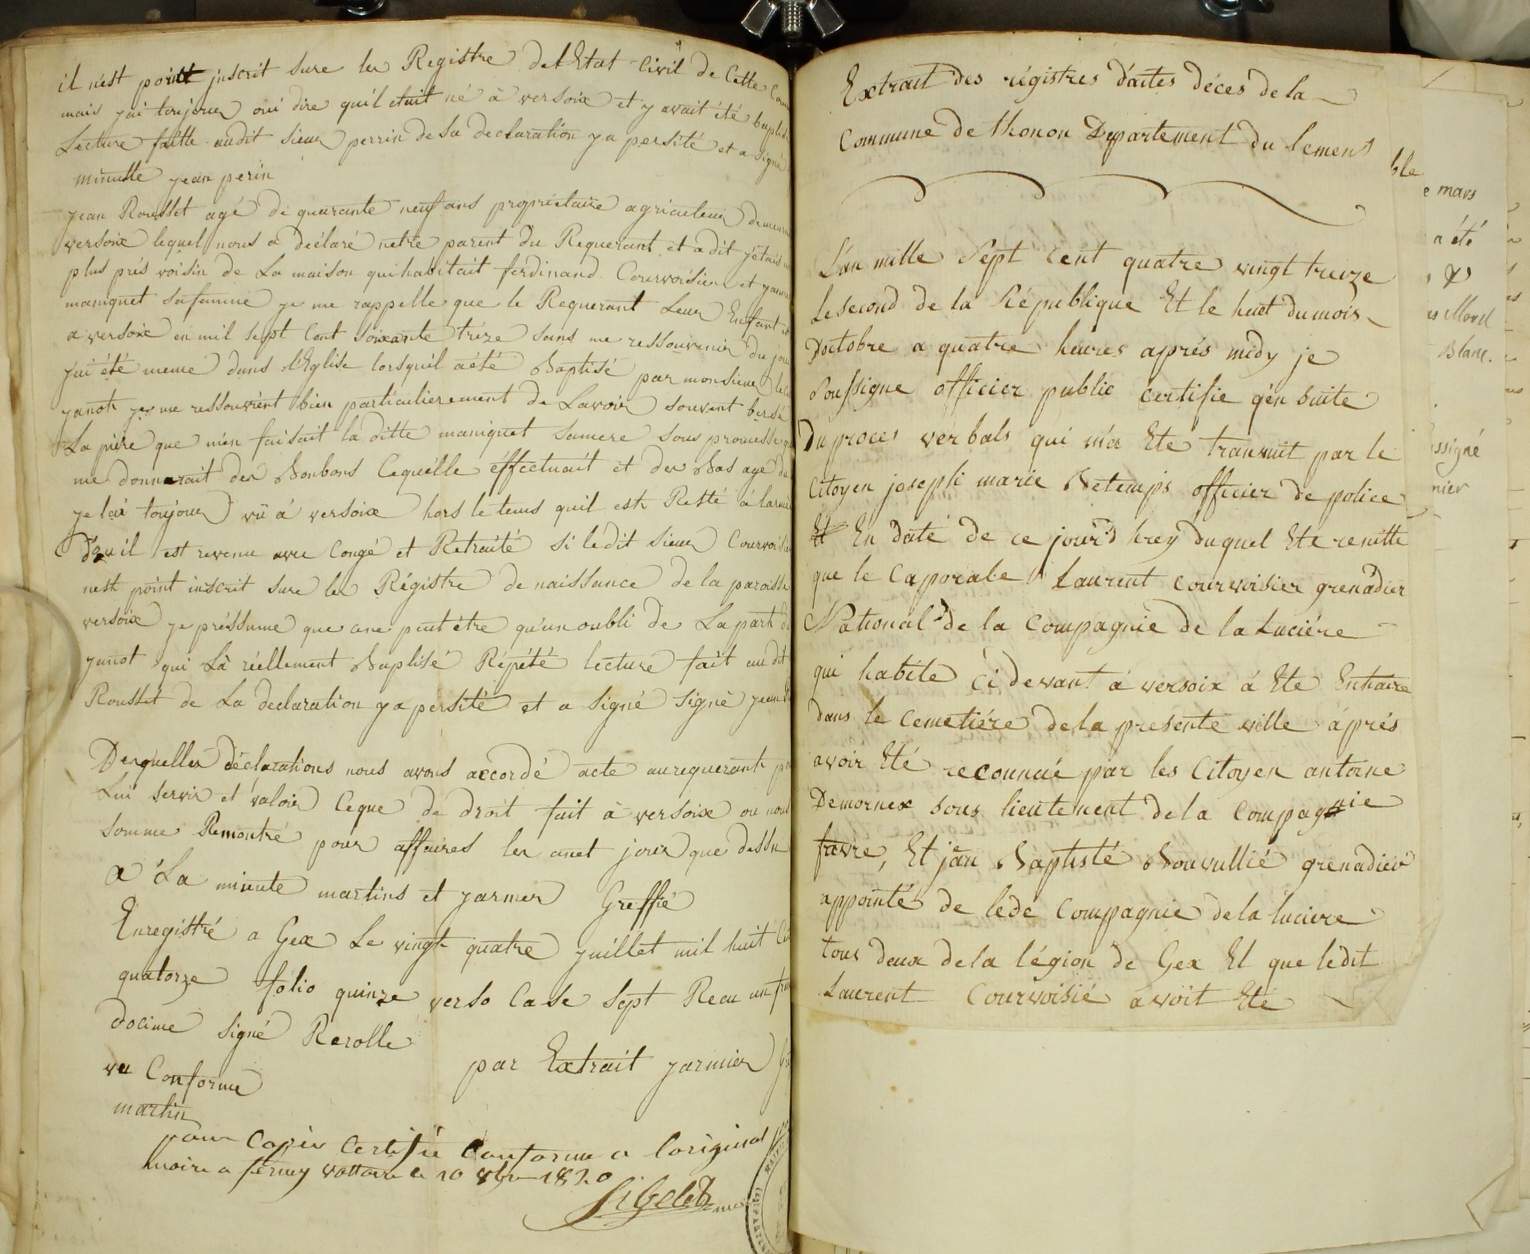 il n'est point inscrit sure les Registre de l'Etat Civil de Cette
mais j'ai toujours oui dire qu'il etait né à versoix et y avait été baptisé
Lecture faitte audit Sieur perrin de Sa declaration y a persité et a Signé
minutte jean perin
jean Rousset agé de quarante neuf ans propriétaire agriculeur
versoix lequel nous a déclaré netre parent du Requerant et a dit j'étais
plus prés voisin de La maison qui habitait ferdinand Courvoisier et
maniquet Safemme je me rappelle que le Requerant Leur Enfant
a versoix en mil sept Cent Soixante trèze sans me ressouvenir du jour
j'ai été meme dans l'Eglise lorsqu'il a été Baptisé par monsieur
yanot je me ressouvient bien particulierement de Lavoir souvent bersé
La pière que m'en faisait la ditte maniquet Samere sous promesse
me donnerait des Bonbons Cequ'elle effectuait et des Bas age
je lai toujours vû á versoix hors le tems quil est Resté à
d'ou il est revenu avec Congé et Retraité Si ledit Sieur
nest point inscrit sure les Régistre de naissance de la paroisse
versoix je préssume que ce ne peut étre qu'un oubli de La part
yanot qui La réellement Baptisé Répété lecture fait audit
Rousset de La declaration y a persité et a Signé Signé jean
Desquelles déclarations nous avons accordé acte au requerant
Lui servir et valoir Ceque de droit fait à versoix ou nous
somme Remontré pour affaires les anet jour que dessu
A La minute martins et yarmer Greffié
Enregistré a Gex Le vingt quatre juillet mil huit
quatorze folio quinze verso Case Sept Recu un
décime Signé Rerolle
par Extrait yarmier
vu Conforme
martin
pour Copie Certifié Conforme a l'original
mairie a ferney voltaire le 10 1820
Extrait des régistres d'actes déces de la
Commune de thonon Departement du lemen
L'an mille Sept cent quatre vingt treize
Le second de la République Et le huet du mois
d'octobre a quatre heures aprés midy je
Soussigne officier public certifie q'en Suite
Du proces verbals qui m'a Ete transmit par le
Citoyen joseph marie Betemps officier de police
En date de ce jourd'hrey duquel Ete remitte
que le Caporale Laurent Courvoisier grenadier
National de la Compagnie de la Luciére
qui habite Ci devant á versoix á Ete Entraire
dans le cemetiére de la presente ville áprés
avoir Eté reconnué par les Citoyen antoine
Demornex sous lieutement de la Compagnie
favre, Et jan Baptisté Bouvullié grenadier
appointé de lede Compagnie de la luciere
tous deux de la légion de Gex Et que ledit
Laurent Courvoisié avoit Ete
mars
a été
Morel
Blanc.